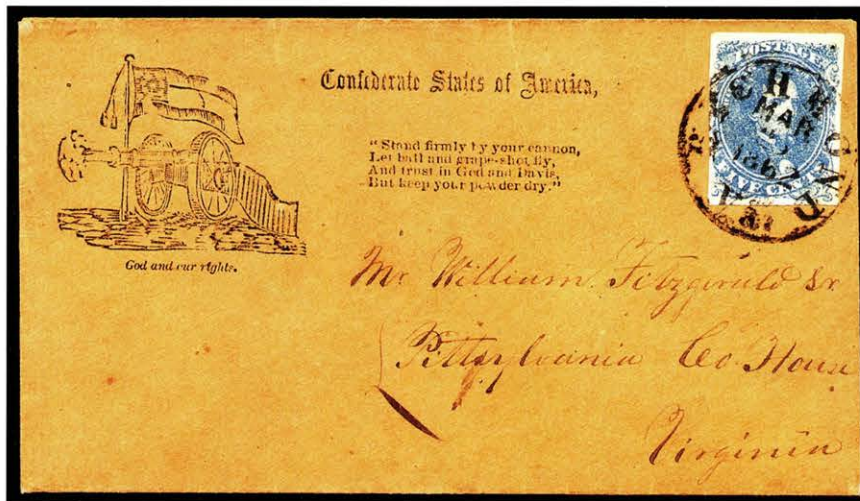 Confederate States of America,
"Stand firmly by your cannon,
Let ball and grape-shot fly,
And trust in God and Davis,
But keep your powder dry."
God and our rights.
POSTAGE
FIVE CENTS
RICHMOND
MAR
1862
VA
Mr William Fitzgerald Sr
Pittsylvania Co House
Virginia